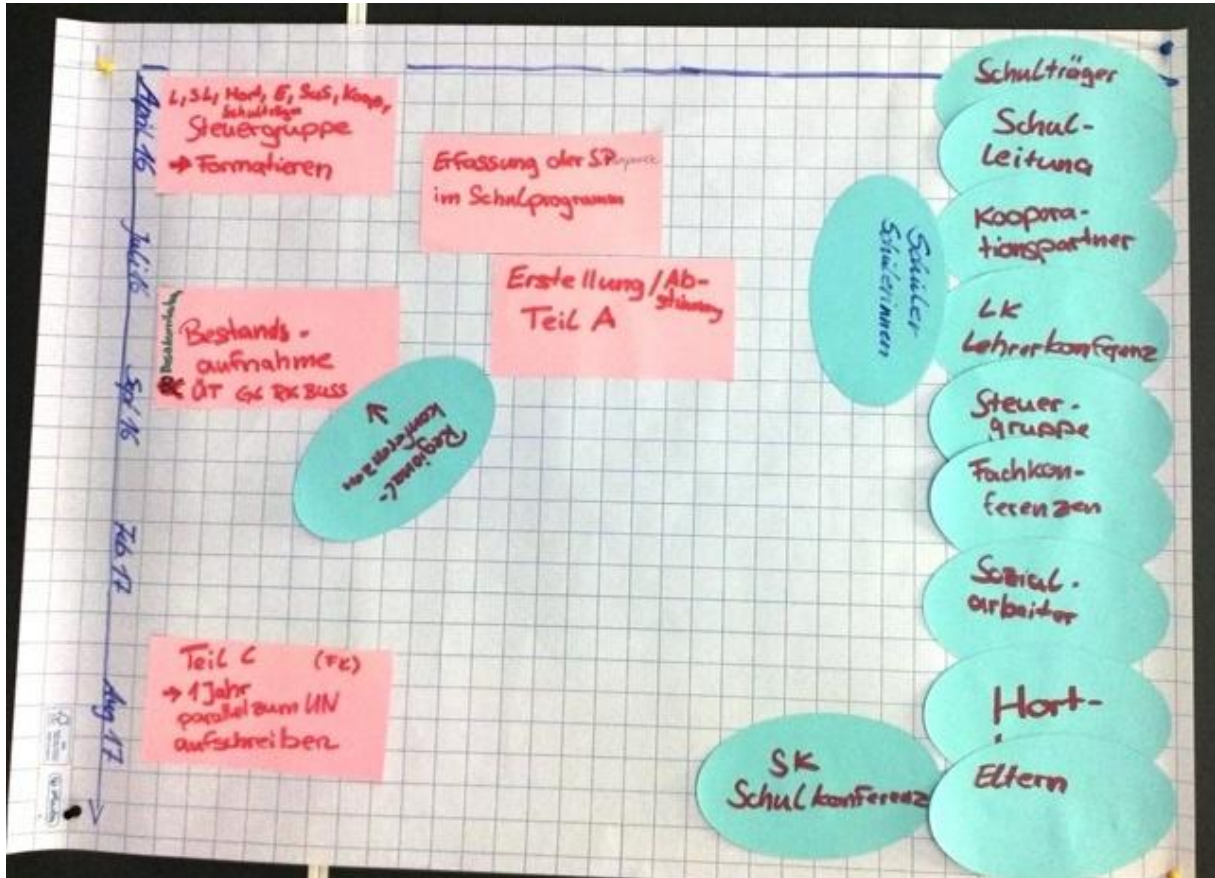 April 16
Juli 16
Sept 16
Feb 17
Aug 17
L, SL, Hort, E, SuS, Koop,
Schulträger
Steuergruppe
→ Formatieren
Erfassung der SP
im Schulprogramm
Erstellung/Ab-
stimmung
Teil A
Bestands-
aufnahme
ÜT GL RK BUSS
Regional-
konferenzen
Teil C (FK)
→ 1 Jahr
parallel zum UN
aufschreiben
Schüler
Schülerinnen
Schulträger
Schul-
Leitung
Koopora-
tionspartner
LK
Lehrerkonferenz
Steuer-
gruppe
Fachkon-
ferenzen
Sozial-
arbeiter
Hort-
Eltern
SK
Schulkonferenz